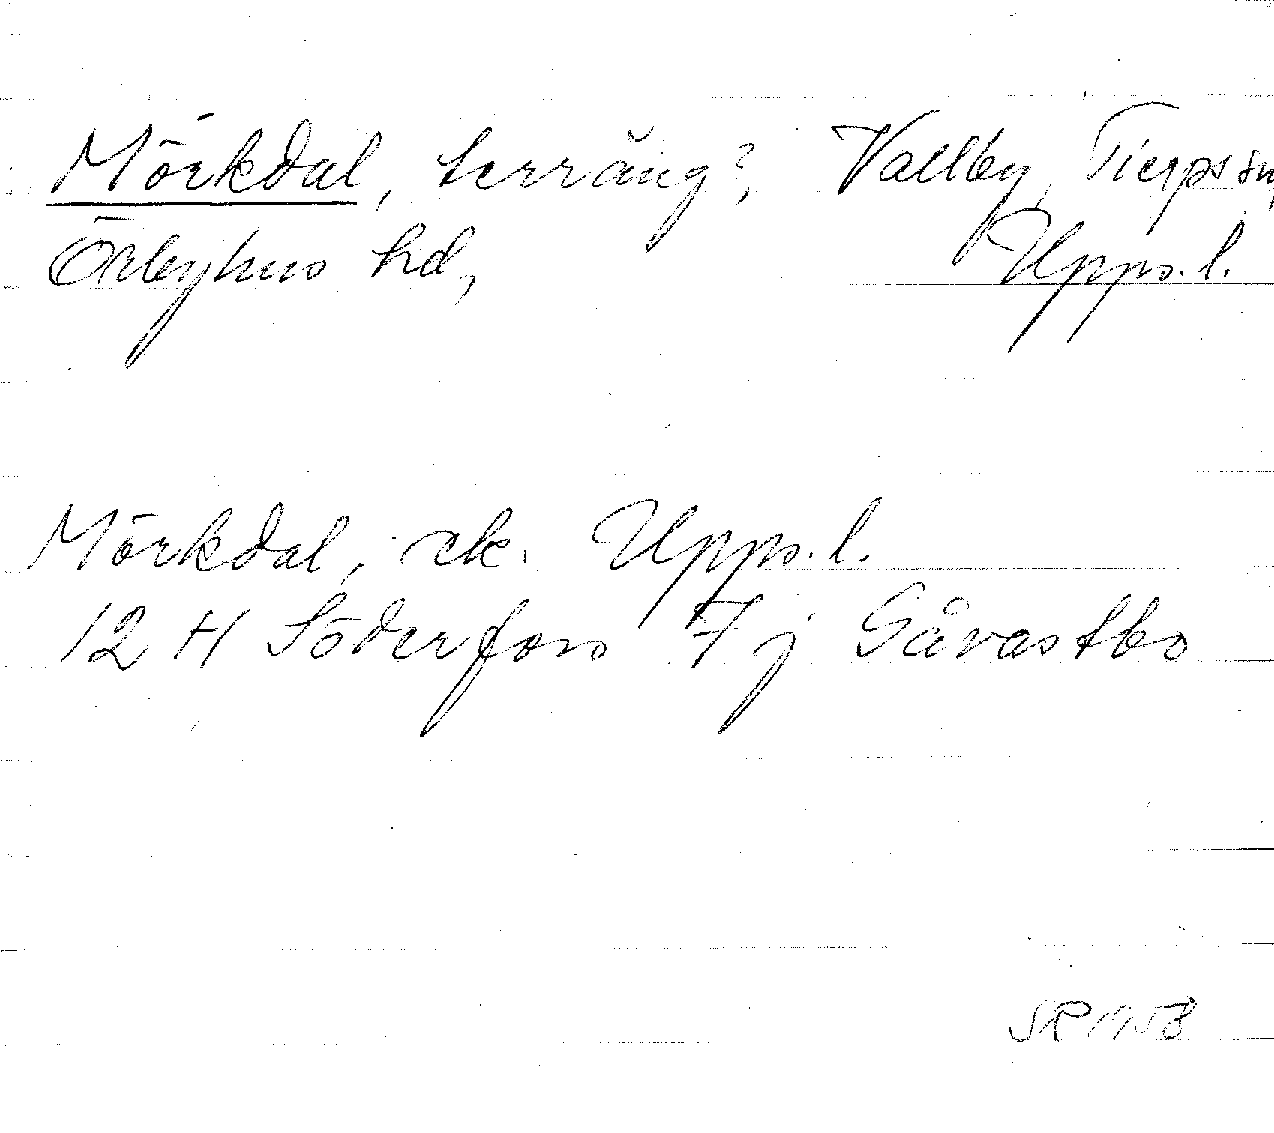 Mörkdal, terräng?, Vallby, Tierps sn,
Örbyhus hd, Upps. l.
Mörkdal, ek. Upps. l.
12 H Söderfors 7 j Gåvastbo
SR 1953